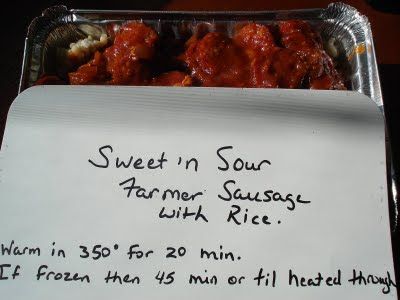 Sweet'n Sour
Farmer Sausage
with Rice.
Warm in 350° for 20 min.
If frozen then 45 min or til heated through